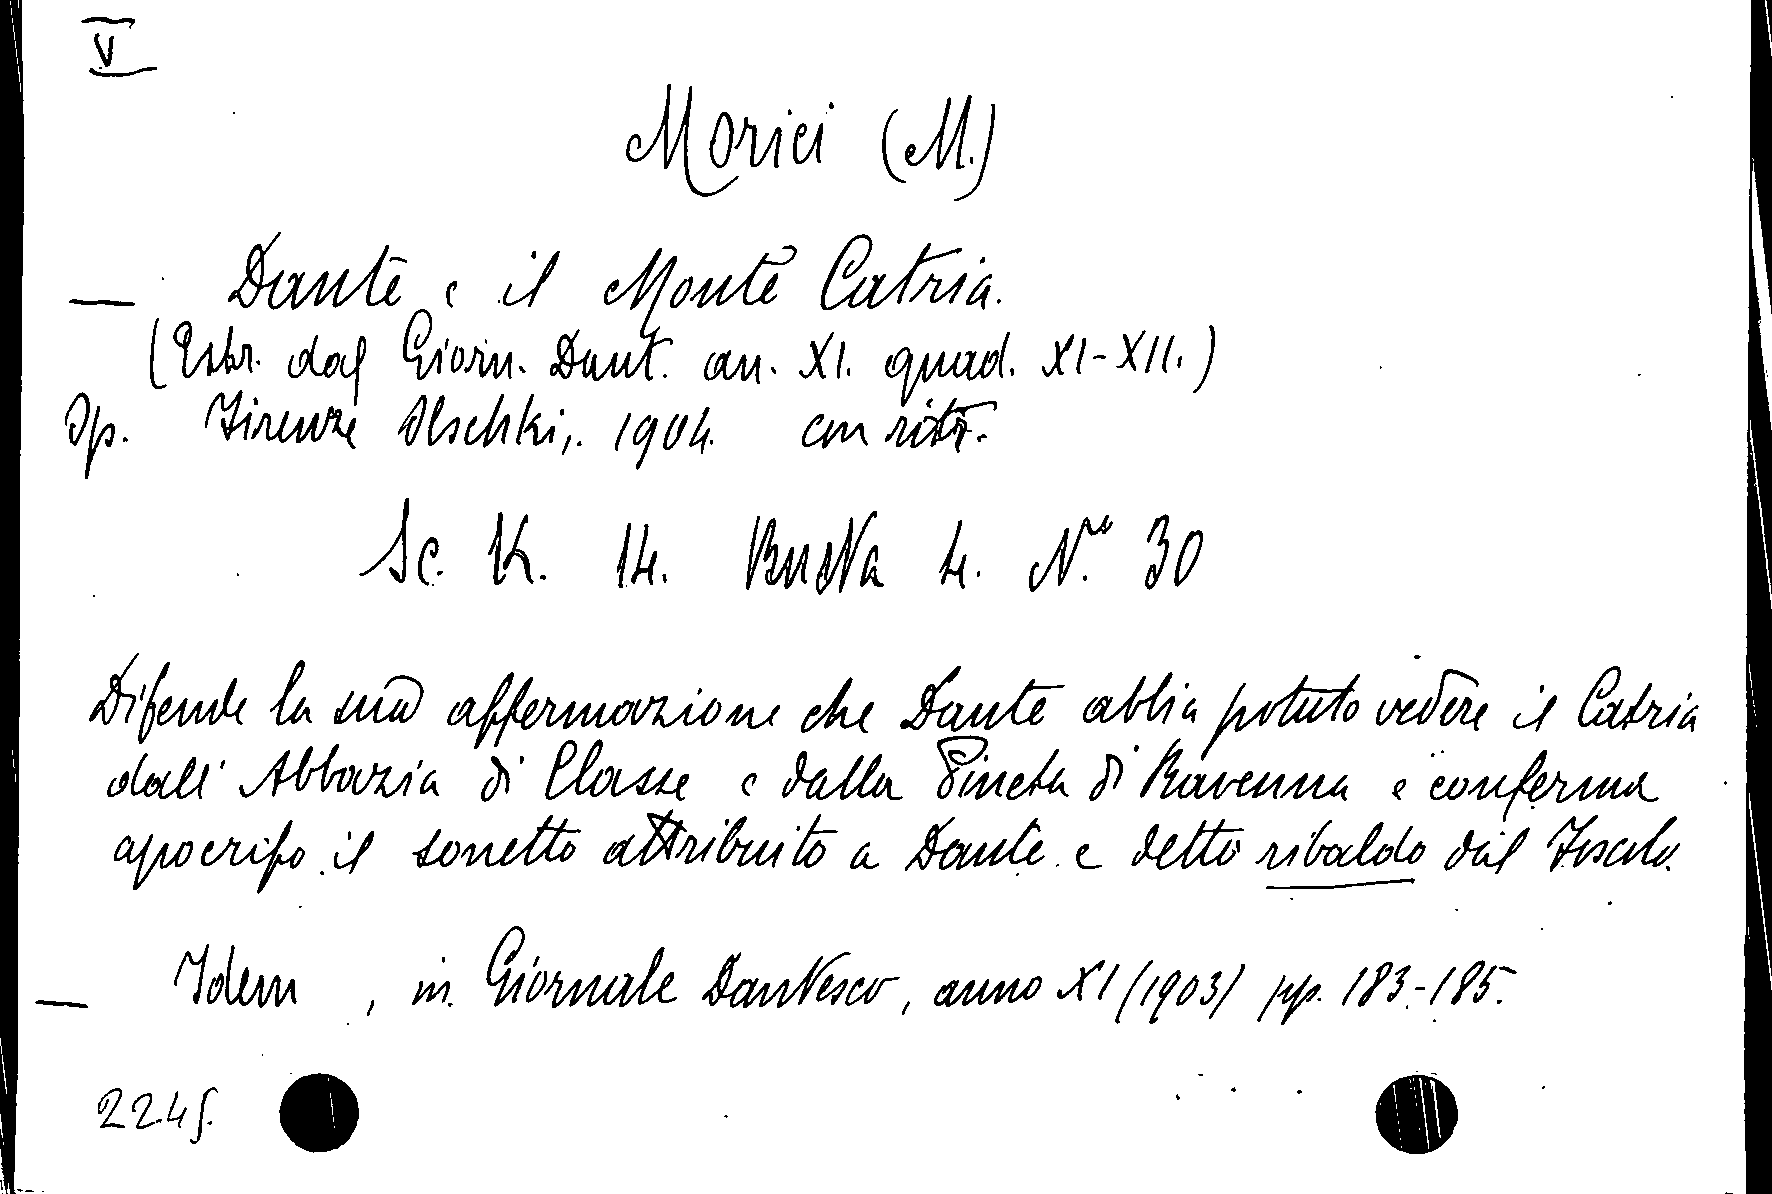 V
Morici (M.)
— Dante e il Monte Catria.
(Estr. dal Giorn. Dant. an. XI. quad. XI-XII.)
Op. Firenze Olschki, 1904. con ritr.
Sc. K. 14. Busta 4. N.º 30
Difende la sua affermazione che Dante abbia potuto vedere il Catria
dall' Abbazia di Classe e dalla Pineta di Ravenna e conferma
apocrifo il sonetto attribuito a Dante e detto ribaldo dal Foscolo.
— Idem , in Giornale Dantesco, anno XI (1903) pp. 183-185.
2245.